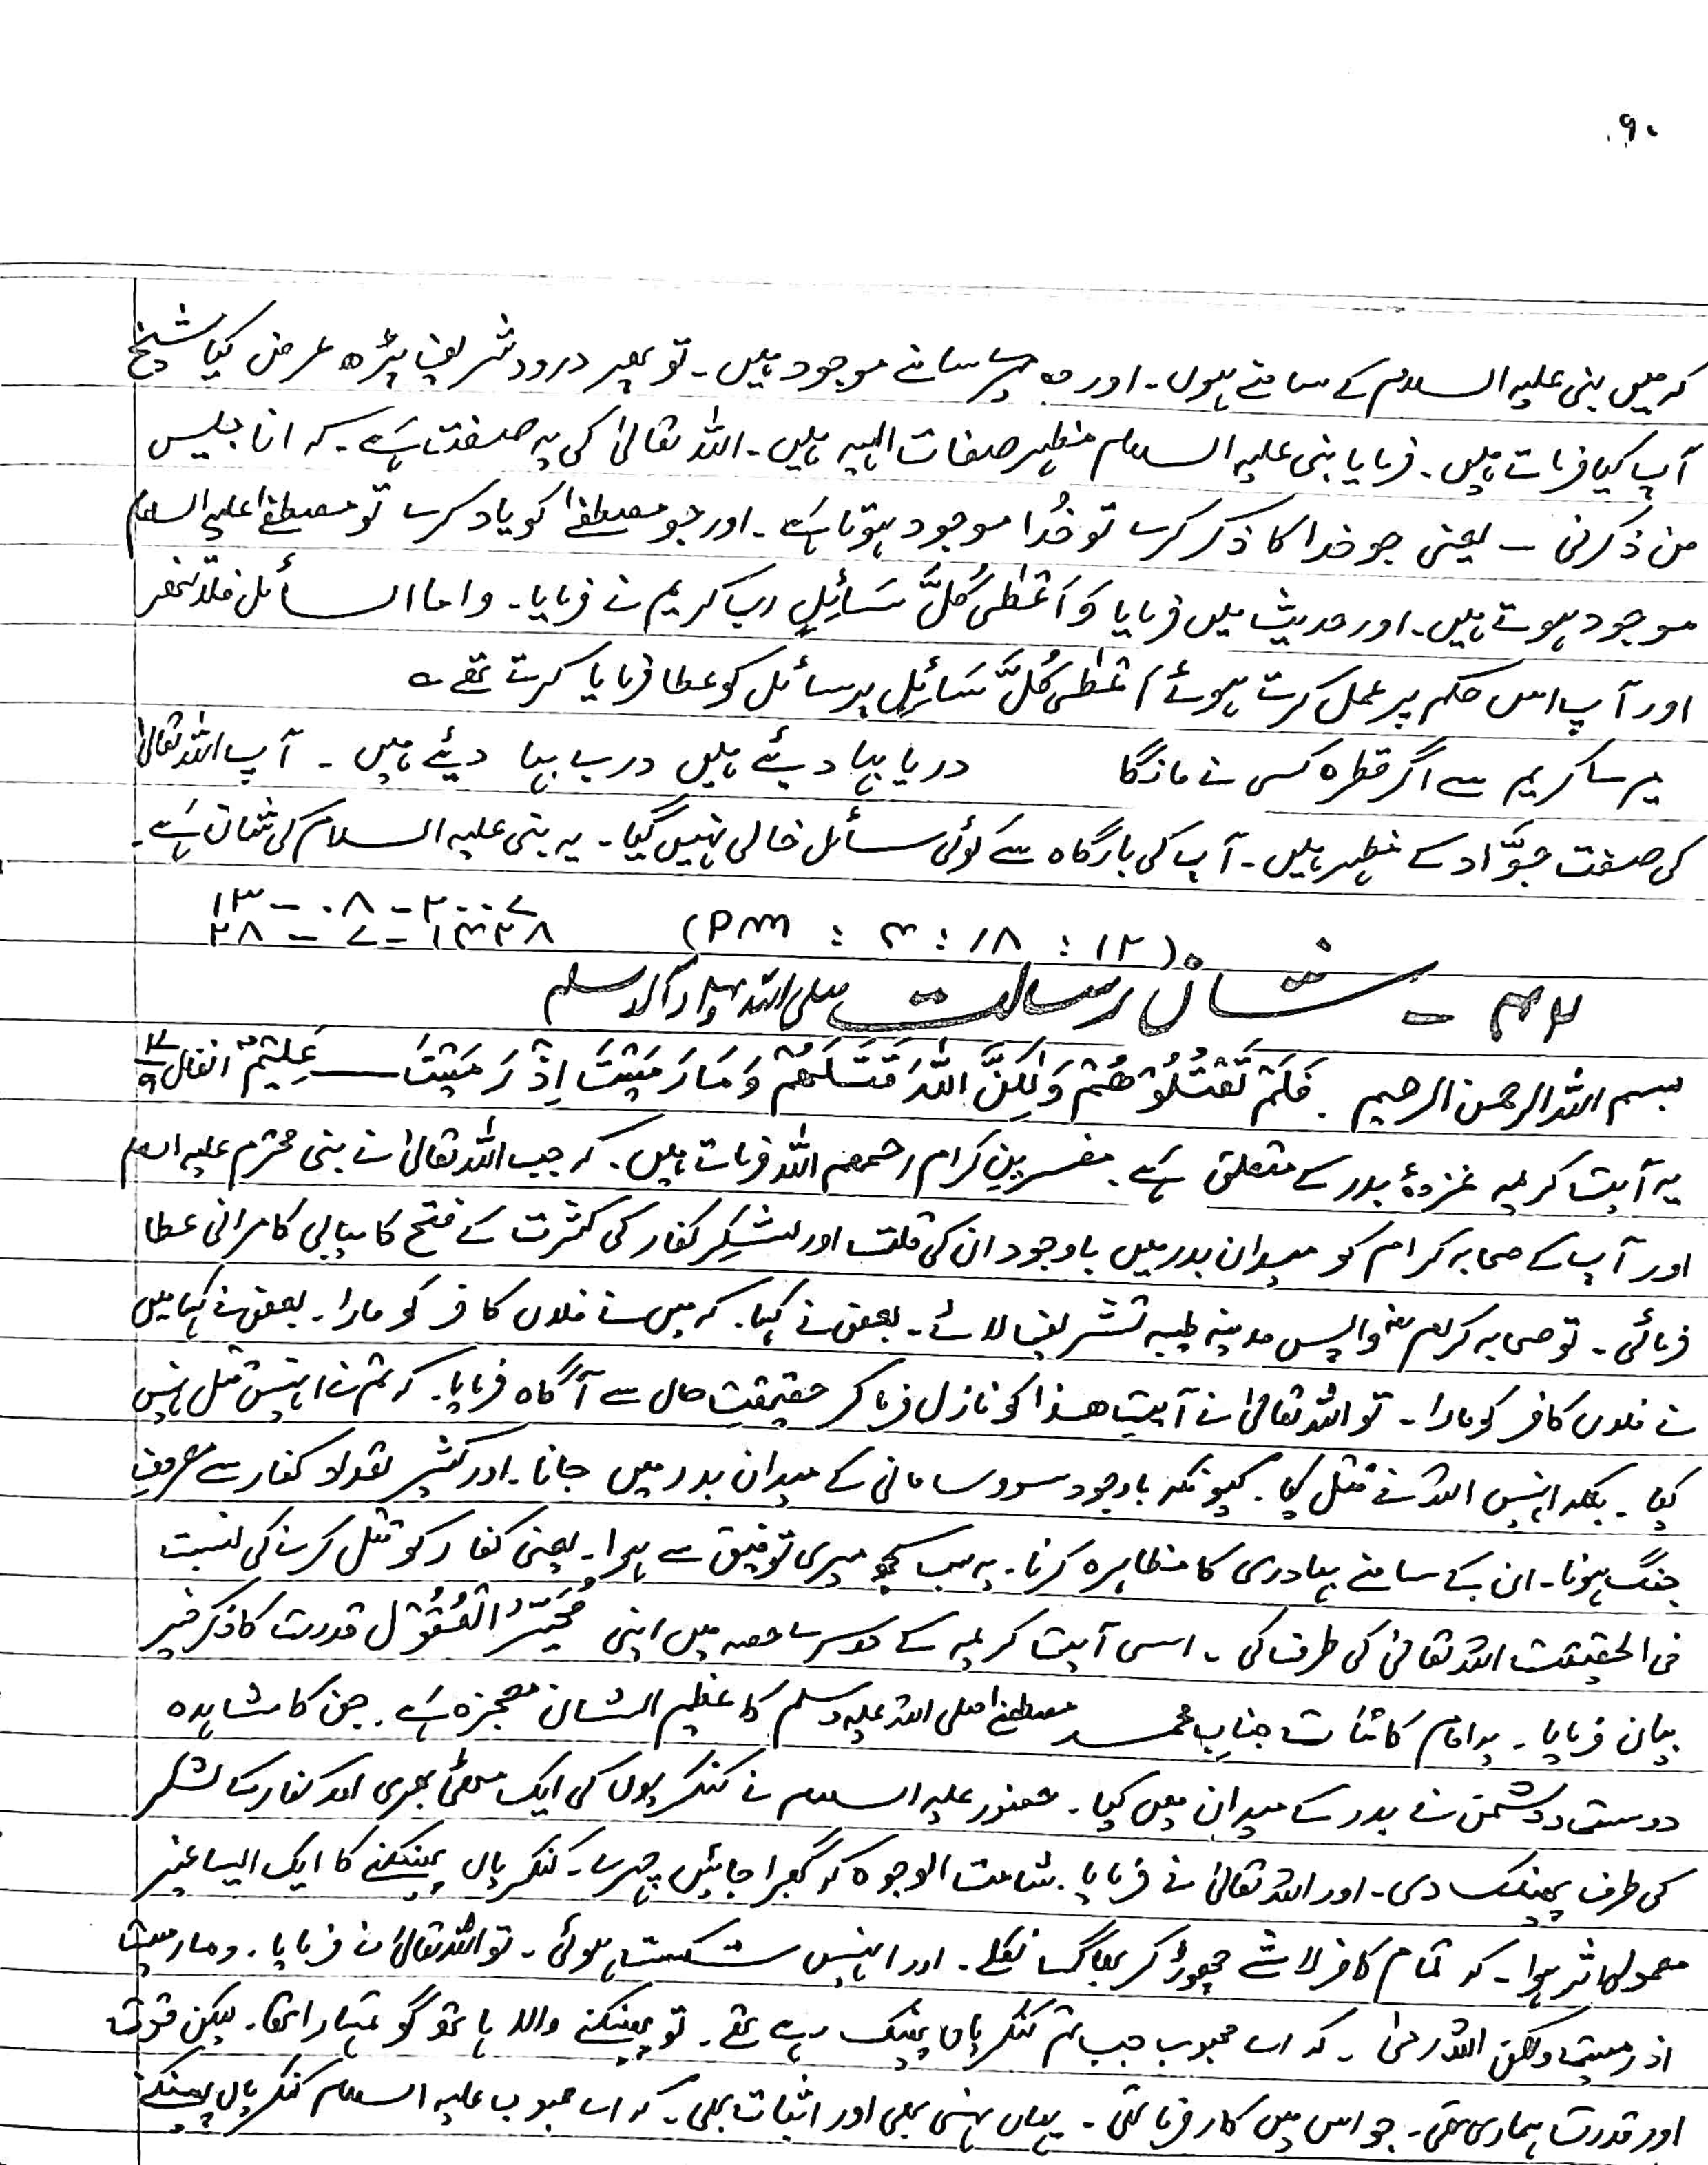 ۹۰
کہ میں نبی علیہ السلام کے سامنے ہوں۔ اور وہ میرے سامنے موجود ہیں۔ تو پھر درود شریف پڑھ عرض کیا شیخ
آپ کیا فرماتے ہیں۔ فرمایا نبی علیہ السلام مظہر صفات الٰہیہ ہیں۔ اللہ تعالیٰ کی یہ صفت ہے۔ کہ انا جلیس
من ذکرنی – یعنی جو خدا کا ذکر کرے تو خُدا موجود ہوتا ہے۔ اور جو مصطفےٰ کو یاد کرے تو مصطفےٰ علیہ السلام
موجود ہوتے ہیں۔ اور حدیث میں فرمایا وَ اَعْطٰی کُلَّ سَائِلٍ رب کریم نے فرمایا۔ واما السائل فلا تنھر
اور آپ اس حکم پر عمل کرتے ہوئے اَعْطٰی کُلَّ سَائِلٍ ہر سائل کو عطا فرمایا کرتے تھے ؎
میرے کریم سے اگر قطرہ کسی نے مانگا دریا بہا دیئے ہیں در بے بہا دیئے ہیں ۔ آپ اللہ تعالیٰ
کی صفت جوّاد کے مظہر ہیں۔ آپ کی بارگاہ سے کوئی سائل خالی نہیں گیا۔ یہ نبی علیہ السلام کی شان ہے۔
۱۳-۰۸-۲۰۰۷
(PM : ۳ : ۱۸ : ۱۲) ۲۸-۷-۱۴۲۸
۴۲ – شان رسالت صلی اللہ علیہ وآلہ وسلم
بسم اللہ الرحمن الرحیم ۔ فَلَمْ تَقْتُلُوْھُمْ وَلٰکِنَّ اللّٰہَ قَتَلَھُمْ وَمَا رَمَیْتَ اِذْ رَمَیْتَ —— عَلِیْمٌ انفال ۱۷/۹
یہ آیت کریمہ غزوۂ بدر کے متعلق ہے۔ مفسرینِ کرام رحمھم اللہ فرماتے ہیں۔ کہ جب اللہ تعالیٰ نے نبی محترم علیہ السلام
اور آپ کے صحابہ کرام کو میدان بدر میں باوجود ان کی قلت اور لشکرِ کفار کی کثرت کے فتح کامیابی کامرانی عطا
فرمائی۔ تو صحابہ کرام واپس مدینہ طیبہ تشریف لائے۔ بعض نے کہا۔ کہ میں نے فلاں کافر کو مارا۔ بعض نے کہا میں
نے فلاں کافر کو مارا۔ تو اللہ تعالیٰ نے آیت ھذا کو نازل فرما کر حقیقت حال سے آگاہ فرمایا۔ کہ تم نے انہیں قتل نہیں
کیا۔ بلکہ انہیں اللہ نے قتل کیا۔ کیونکہ باوجود سروسامانی کے میدان بدر میں جانا۔ اور کثیر تعداد کفار سے مصروفِ
جنگ ہونا۔ ان کے سامنے بہادری کا مظاہرہ کرنا۔ یہ سب کچھ میری توفیق سے ہوا۔ یعنی کفار کو قتل کرنے کی نسبت
فی الحقیقت اللہ تعالیٰ کی طرف کی۔ اسی آیت کریمہ کے دوسرے حصہ میں اپنی مُحَیِّرُ الْعُقُوْل قدرت کا ذکر خیر
بیان فرمایا۔ یہ امام کائنات جناب محمد مصطفےٰ صلی اللہ علیہ وسلم کا عظیم الشان معجزہ ہے۔ جس کا مشاہدہ
دوست و دشمن نے بدر کے میدان میں کیا۔ حضور علیہ السلام نے کنکریوں کی ایک مٹھی بھری اور کفار کے لشکر
کی طرف پھینک دی۔ اور اللہ تعالیٰ نے فرمایا۔ شاھت الوجوہ کہ گھبرا جائیں چہرے۔ کنکریاں پھینکنے کا ایک ایسا غیر
معمولی اثر ہوا۔ کہ تمام کافر لاشے چھوڑ کر بھاگ نکلے۔ اور انہیں شکست ہوئی۔ تو اللہ تعالیٰ نے فرمایا۔ وما رمیت
اذ رمیت ولکن اللہ رمیٰ ۔ کہ اے محبوب جب تم کنکریاں پھینک رہے تھے۔ تو پھینکنے والا ہاتھ گو تمہارا تھا۔ لیکن قوت
اور قدرت ہماری تھی۔ جو اس میں کار فرما تھی۔ یہاں نہیں بھی اور اثبات بھی۔ کہ اے محبوب علیہ السلام کنکریاں پھینکنے